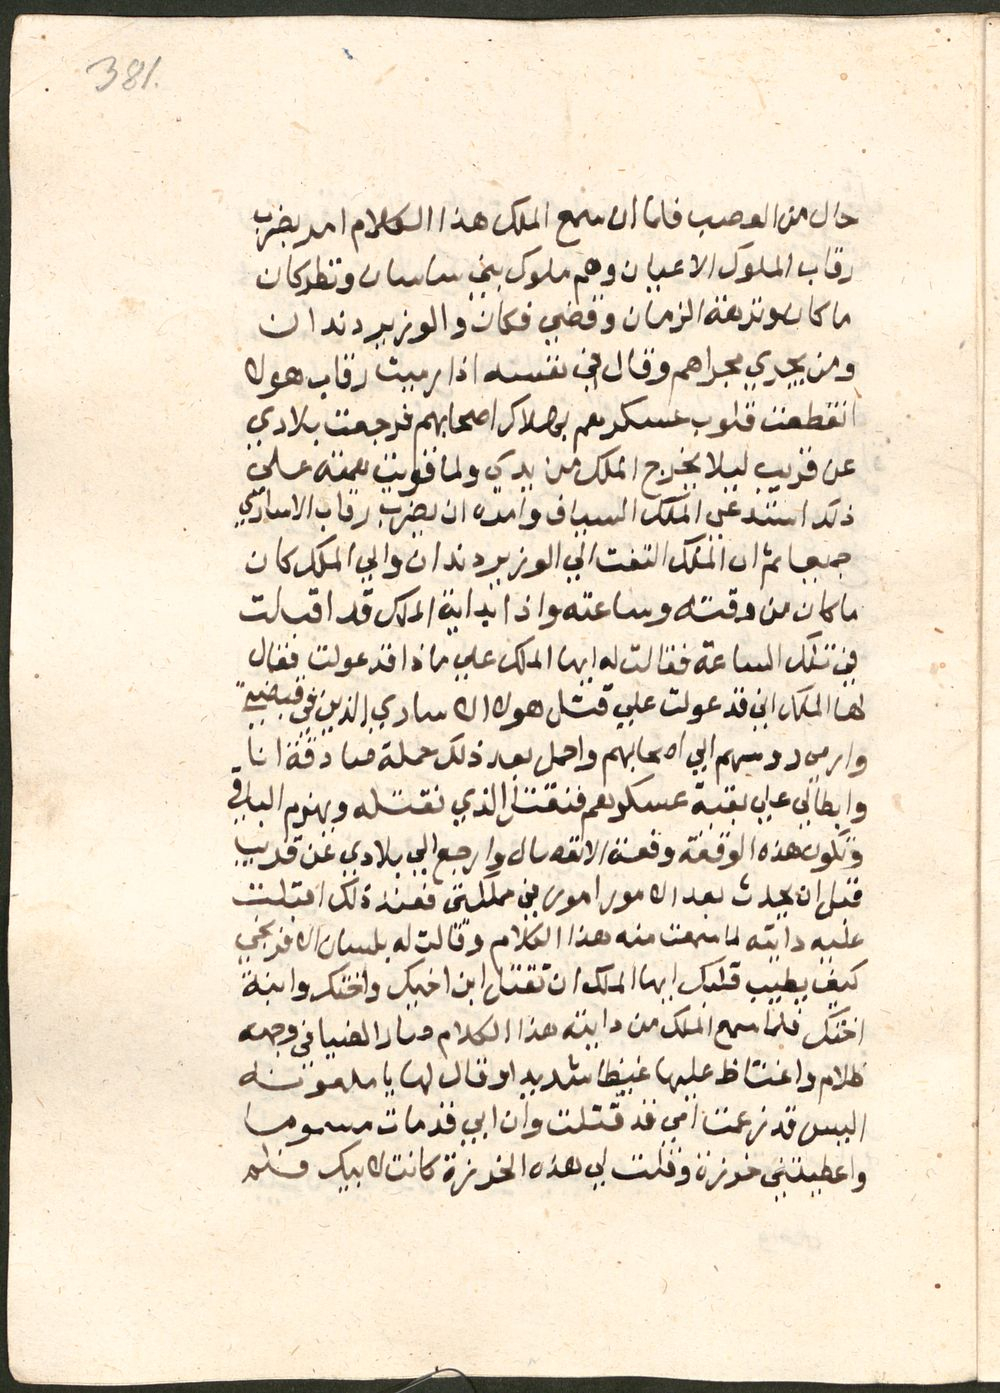 381.
حال من الغضب فلما ان سمع الملك هذا الكلام امر بضرب
رقاب الملوك الاعيان وهم ملوك بني ساسان وتظركان
ما كان ونزهة الزمان وقضي فكان والوزير دندان
ومن يجري مجراهم وقال في نفسه اذا رميت رقاب هولا
انقطعت قلوب عسكرهم بهلاك اصحابهم فرجعت بلادي
عن قريب ليلا يخرج الملك من يدي ولما قويت همته علي
ذلك استدعي الملك السياف وامره ان يضرب رقاب الاساري
جميعا ثم ان الملك التفت الي الوزير دندان والي الملك كان
ما كان من وقته وساعته واذا بداية الملك قد اقبلت
في تلك الساعة فقالت له ايها الملك علي ماذا قد عولت فقال
لها الملك اني قد عولت علي قتل هولا الاساري الذين في قبضتي
وارمي روسهم الي اصحابهم واحمل بعد ذلك حملة صادقة انا
وابطالي علي بقية عسكرهم فنقتل الذي نقتله ويهزم الباقي
وتكون هذه الوقعة وقعة الانفصال وارجع الي بلادي عن قريب
قبل ان يحدث بعد الامور امور في مملكتي فعند ذلك اقبلت
عليه دايته لما سمعت منه هذا الكلام وقالت له بلسان الافرنجي
كيف يطيب قلبك ايها الملك ان تقتل ابن اخيك واختك وابنة
اختك فلما سمع الملك من دايته هذا الكلام صار الضيا في وجهه
ظلام واغتاظ عليها غيظا شديدا وقال لها يا ملعونه
اليس قد زعمت امي قد قتلت وان ابي قد مات مسموما
واعطيتني خرزة وقلت لي هذه الخرزة كانت لابيك فلم